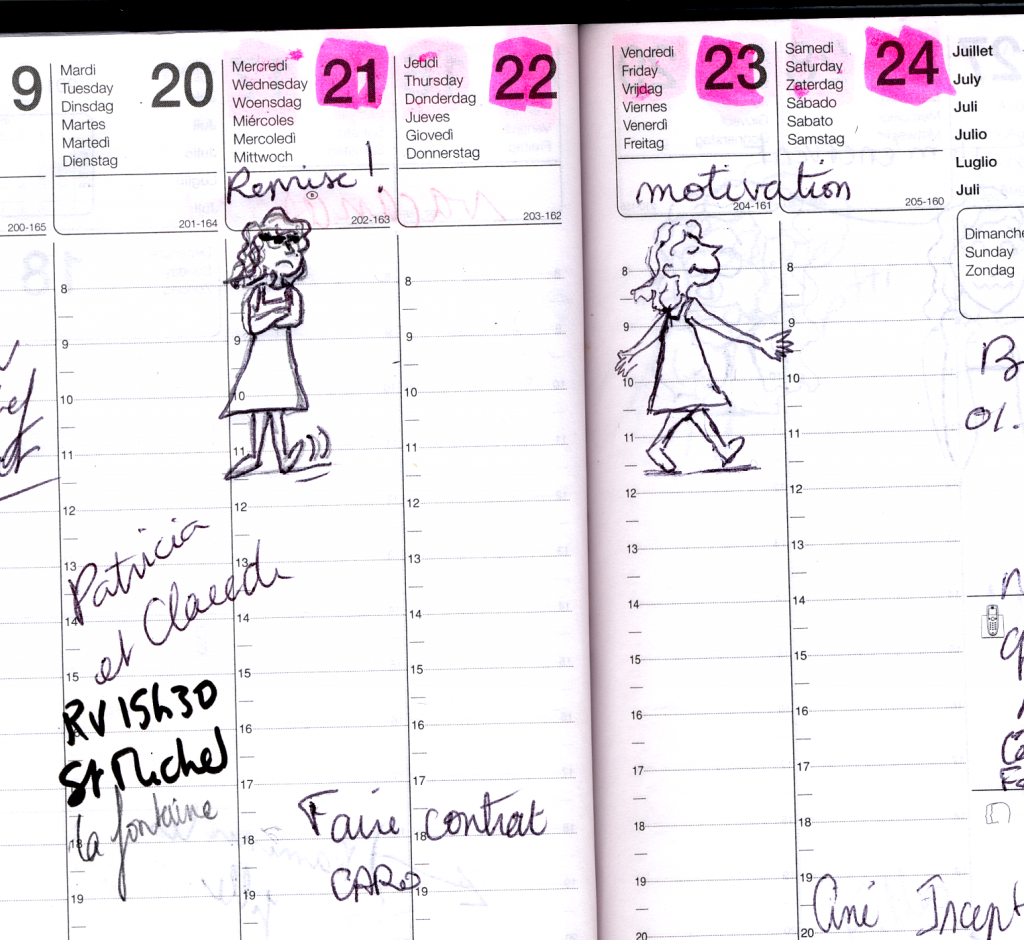 9
Mardi
Tuesday
Dinsdag
Martes
Martedì
Dienstag
20
Mercredi
Wednesday
Woensdag
Miércoles
Mercoledì
Mittwoch
21
Jeudi
Thursday
Donderdag
Jueves
Giovedì
Donnerstag
22
Vendredi
Friday
Vrijdag
Viernes
Venerdì
Freitag
23
Samedi
Saturday
Zaterdag
Sábado
Sabato
Samstag
24
Juillet
July
Juli
Julio
Luglio
Juli
Reprise !
motivation
200-165
201-164
202-163
203-162
204-161
205-160
Dimanche
Sunday
Zondag
8
9
10
11
12
13
14
15
18
19
Patricia
et Claude
RV 15h30
St Michel
la fontaine
9
10
11
12
13
14
15
16
17
18
19
8
9
10
11
12
13
14
15
16
17
18
19
Faire contrat
CARO
8
9
10
11
12
13
14
15
16
17
18
19
20
8
9
10
11
12
13
14
15
16
17
18
19
20
Ciné Incept
B
01.